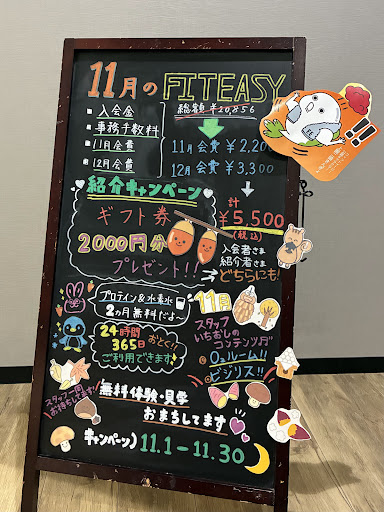 11月の FITEASY
入会金
事務手数料
11月会費
12月会費
総額 ¥20,856
11月 会費 ¥2,20
12月 会費 ¥3,300
紹介キャンペーン
計
¥5,500
(税込)
ギフト券
2000円分
プレゼント!!
入会者さま
紹介者さま
どちらにも!
プロテイン&水素水
2ヵ月無料だよ〜
24時間
365日
おとく!!
ご利用できます
11月
スタッフ
いちおしの
コンテンツ
O2ルーム!!
ビジリス!!
無料体験・見学
おまちしてます
スタッフ一同
お待ちしてます!
キャンペーン) 11.1-11.30
!!